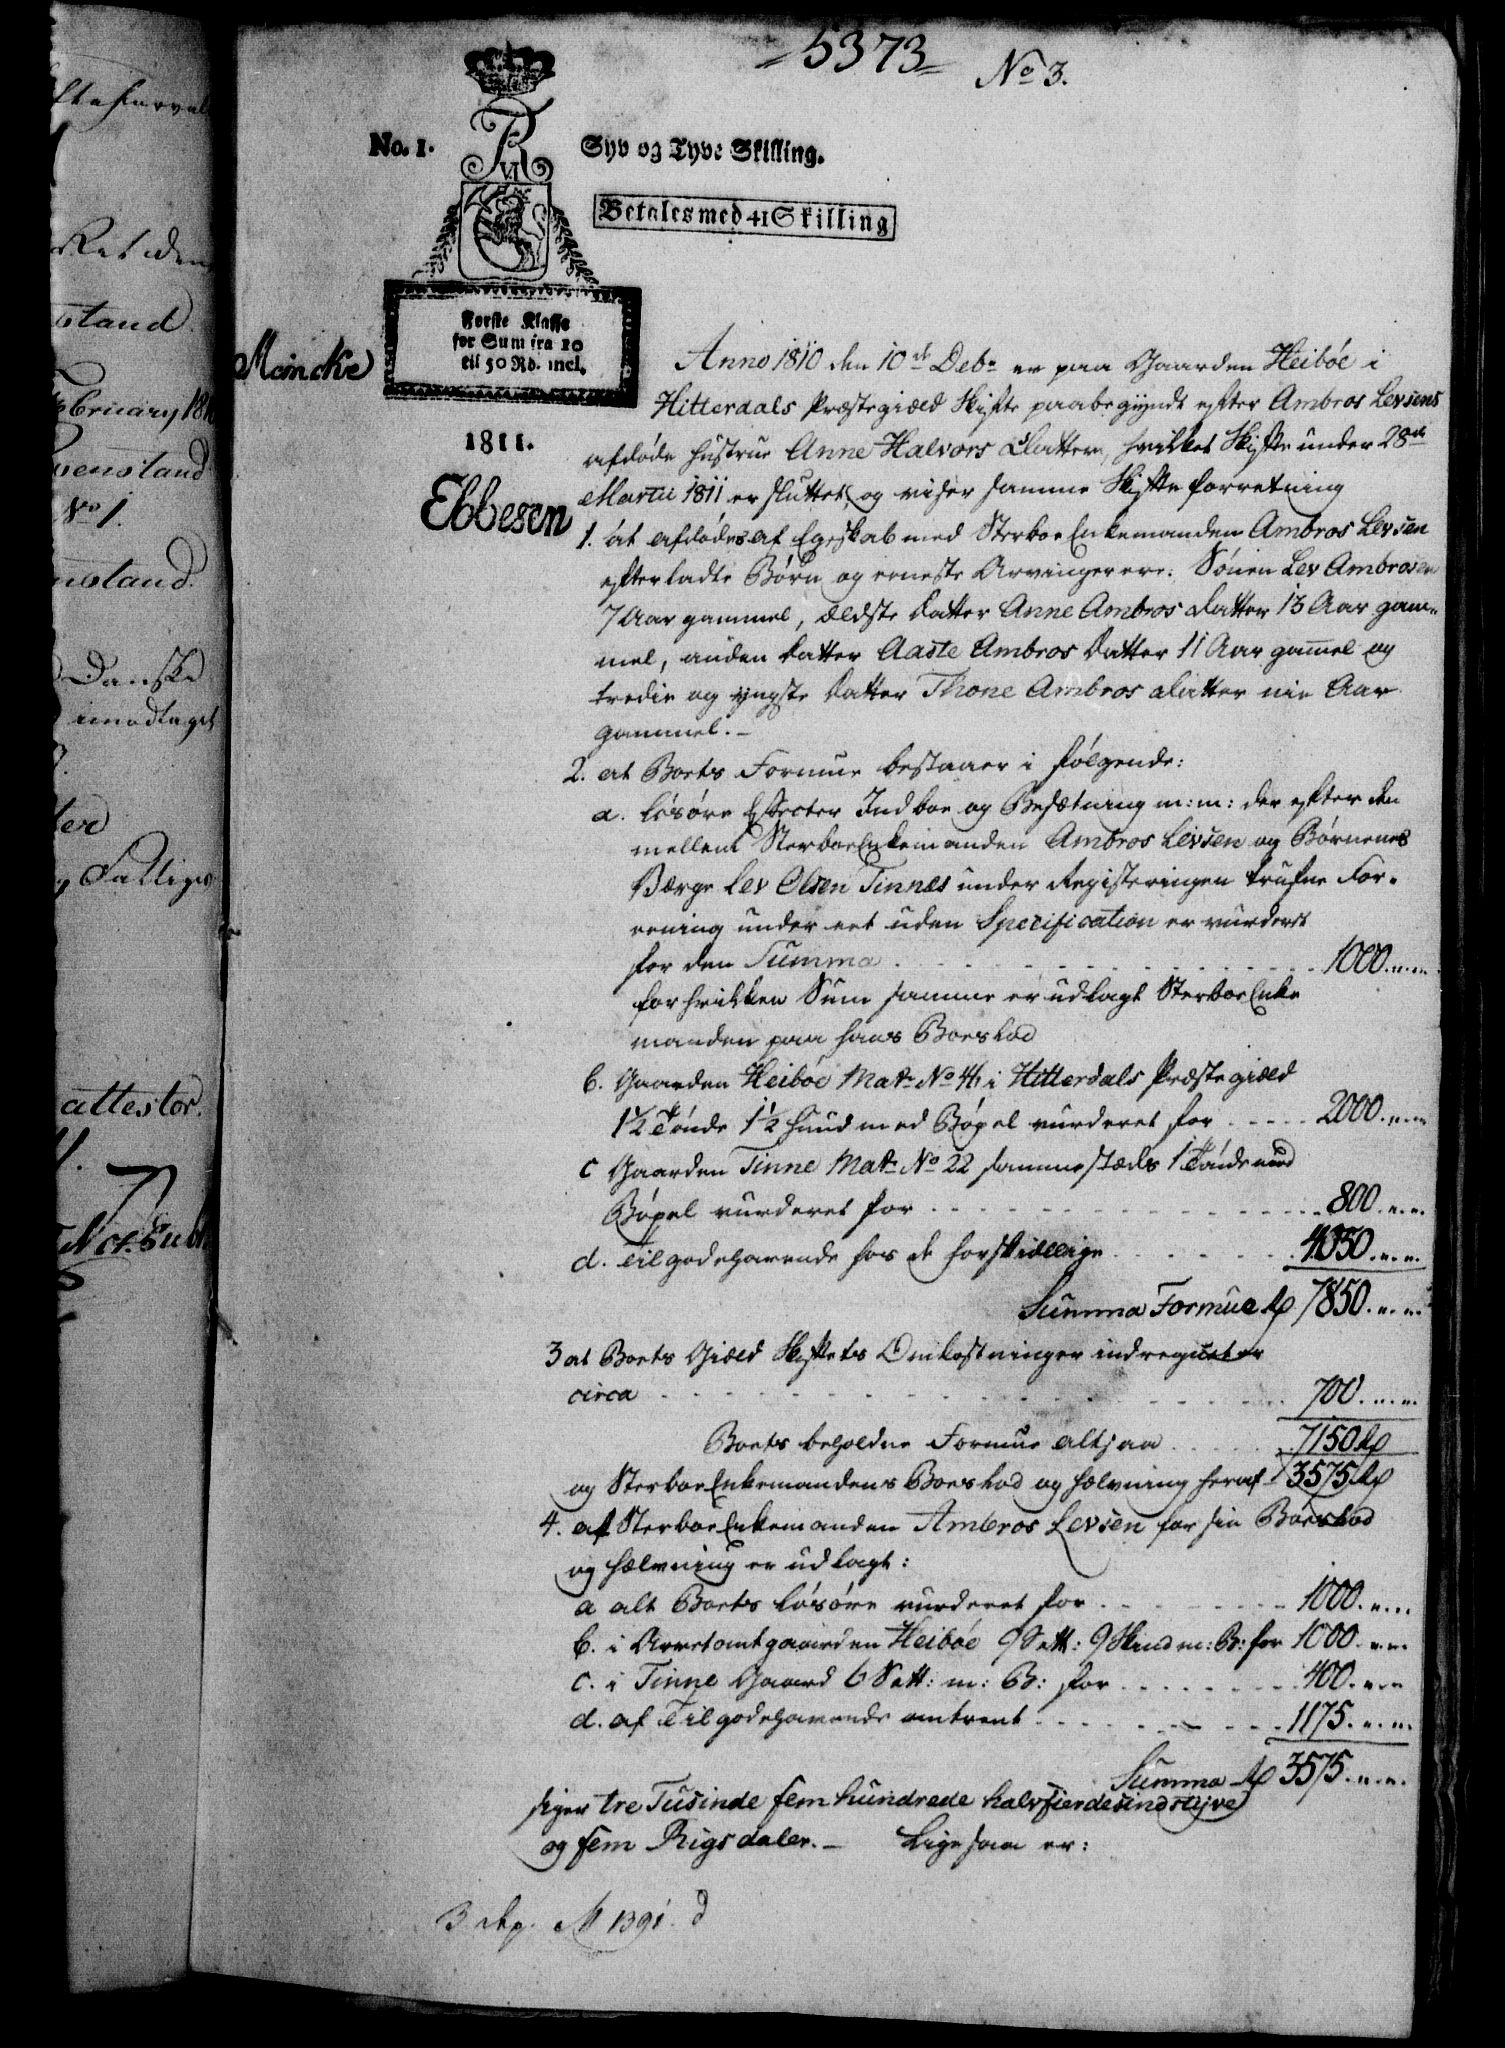 5373
No 3.
No. 1.
Syv og Tyve Skilling.
VI
Betales med 41 Skilling
Første Klasse
for Sum fra 10
til 50 Rd. incl.
Meincke
1811.
Ebbesen
Anno 1810 den 10de Debr er paa Gaarden Heibøe i
Hitterdals Præstegiæld Skifte paabegyndt efter Ambros Levsens
afdøde Hustrue Anne Halvors Datter, hvilket Skifte under 28de
Martii 1811 er sluttet, og viser samme Skifte forretning
1. at afdødes af Egteskab med Sterboe Enkemanden Ambros Levsen
efterladte Børn og eeneste Arvinger ere: Sønen Lev Ambrosen
7 Aar gammel, ældste Datter Anne Ambros Datter 13 Aar gam-
mel, anden Datter Aaste Ambros Datter 11 Aar gamel og
tredie og yngste Datter Thone Ambros Datter nie Aar
gammel. -
2. at Boets Formue bestaaer i følgende:
a. Løsøre Effecter Indboe og Besætning m: m: der efter den
mellem Sterboe Enkemanden Ambros Levsen og Børnenes
Værge Lev Olsen Tinnes under Registeringen trufne For-
eening under eet uden Specification er vurderet
for den Summa . . . 1000. " . "
for hvilken Sum samme er udlagt Sterboe Enke
manden paa hans Boeslod
b. Gaarden Heibøe Matr No 41 i Hitterdals Præstegiæld
1½ Tønde 1½ Huud med Bøxel vurderet for . . . 2000. " . "
c Gaarden Tinne Matr No 22 sammestæds 1 Tønde med
Bøxel vurderet for . . . 800. " . "
d. Tilgodehavende hos de forskiællige . . . 4050. " . "
Summa Formue Rd 7850. " . "
3 at Boets Giæld Skiftets Omkostninger indregnet er
circa . . . 700. " . "
Boets beholdne Formue altsaa . . . 7150 Rd
og Sterboe Enkemandens Boeslod og hælvning heraf 3575 Rd
4. at Sterboe Enkemanden Ambros Levsen for sin Boeslod
og hælvning er udlagt:
a alt Boets Løsøre vurderet for . . . 1000. " . "
b. i gaarden Heibøe 9 Sett: 9 Skind m: B: for 1000. " . "
c. i Tinne Gaard 6 Sett: m: B: for . . . 400. " . "
d. af Tilgodehavende omtrent . . . 1175. " . "
Summa Rd 3575. " . "
siger tre Tusinde fem hundrede halvfierdesindstyve
og fem Rigsdaler. - Ligesaa er:
1391.
Ret den
stand
February 181
venstand
No 1.
nstand.
Danske
imodtaget
ter
Fattiges
attestor.